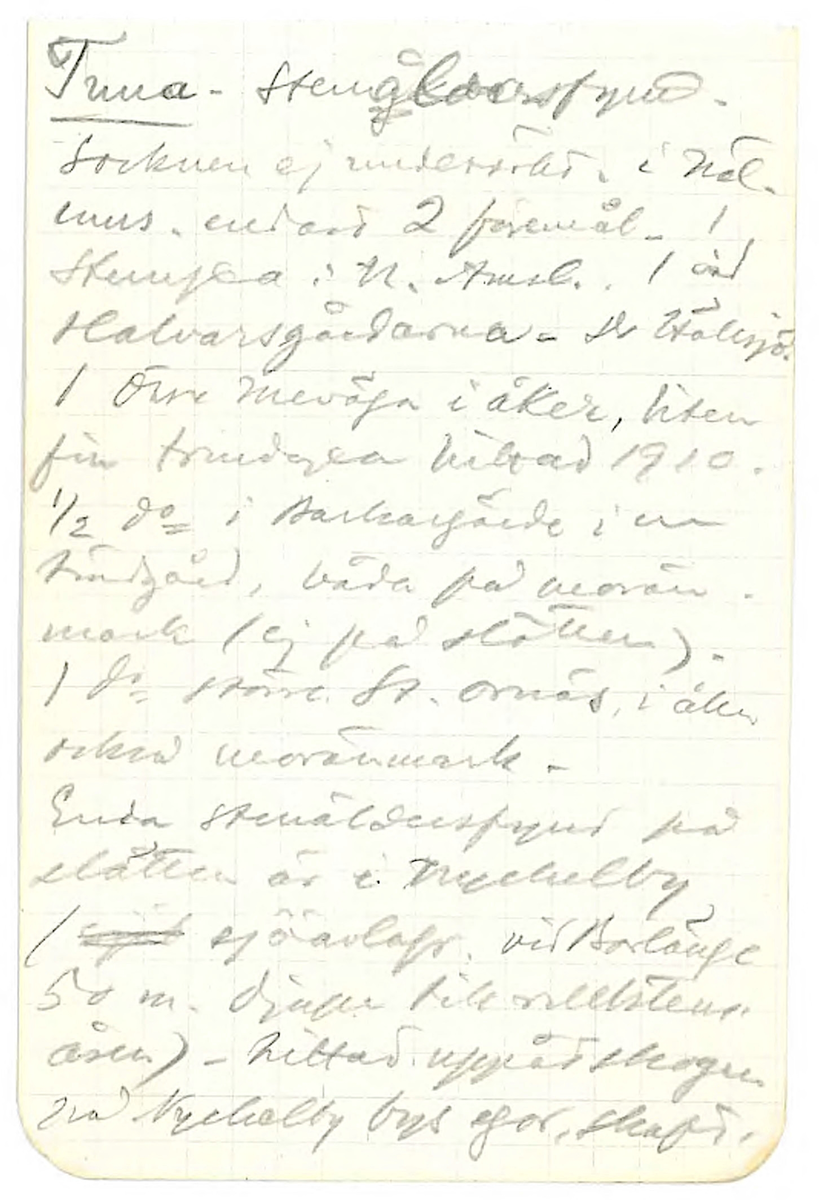 Tuna - Stenåldersfynd.
Socknen ej undersökt. i
mus. endast 2 föremål. 1
Stenyxa i N. Amsb. 1 vid
Halvarsgårdarna -
1 Övre Mevåga i åker, liten
fin trindyxa hittad 1910.
1/2 do i Barkargärde i en
trädgård, båda på morän-
mark (ej på slätten).
1 do större St. Ornäs, i åker
också moränmark -
Enda stenåldersfynd på
slätten är i Nyckelby
( sjöavlagr. vid Borlänge
50 m. djupa till rullstens-
åsen) - hittad uppåt skogen
på Nyckelby bys egor, skaft.